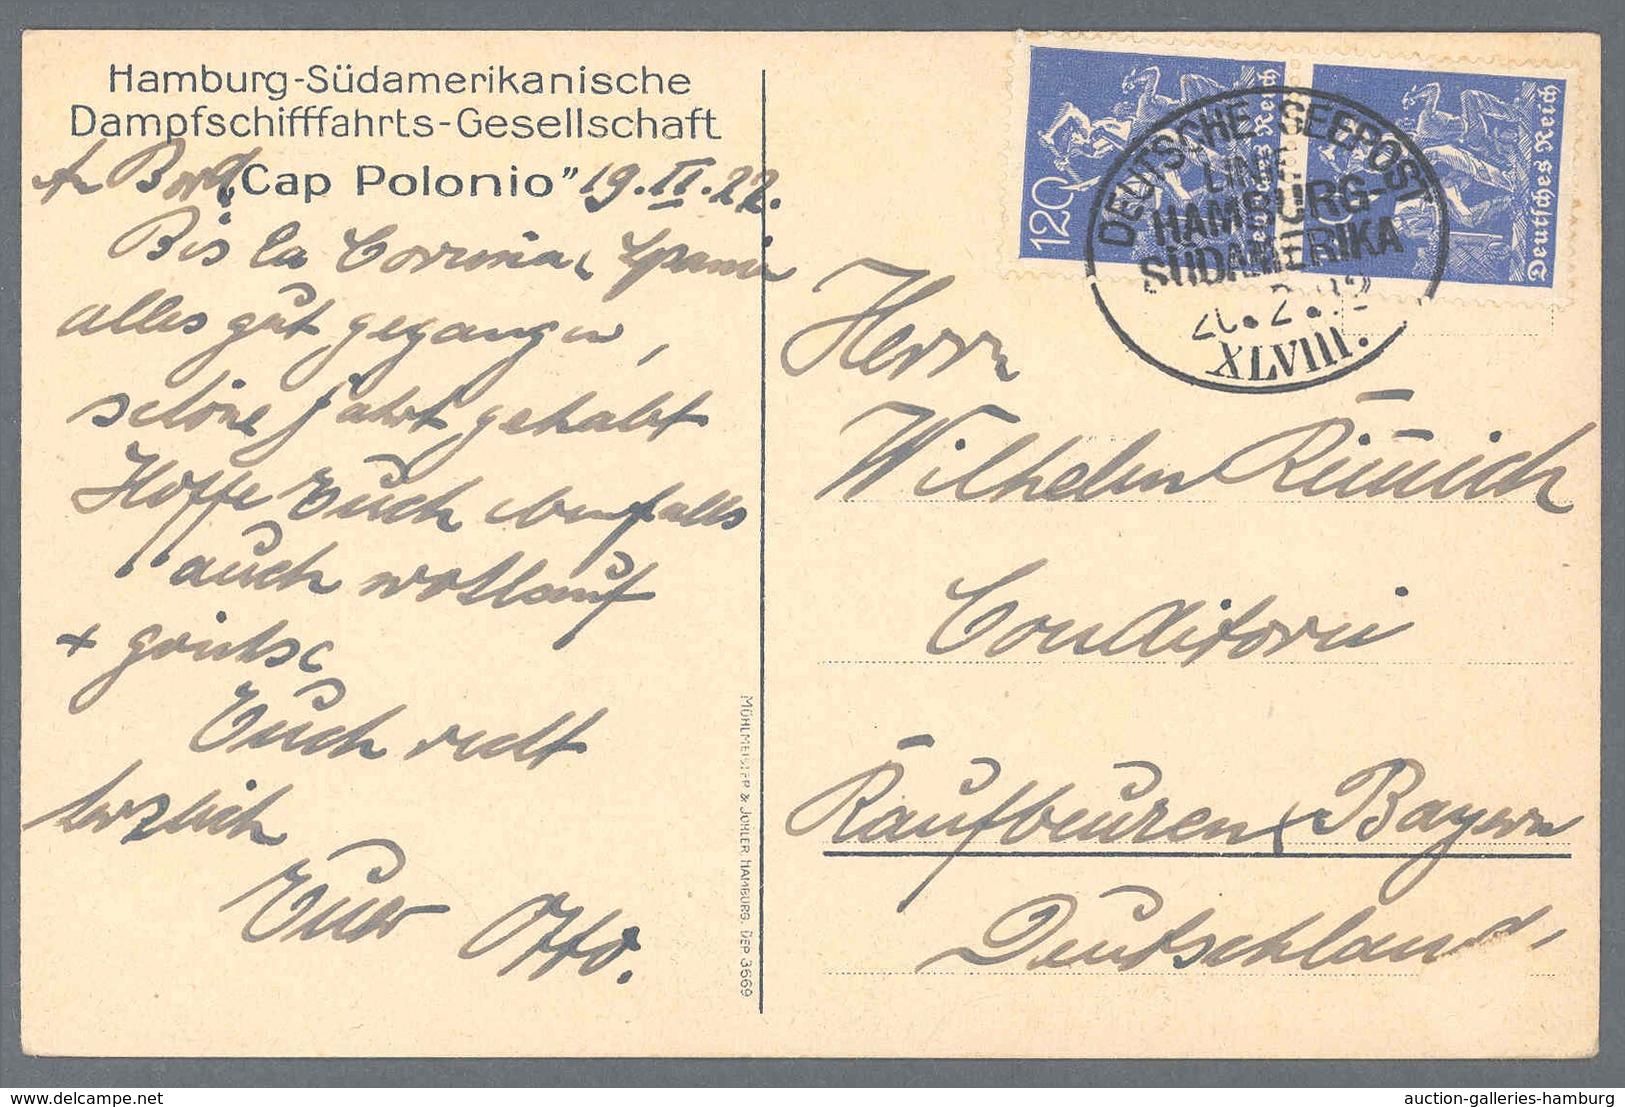 Hamburg-Südamerikanische
Dampfschifffahrts-Gesellschaft
An Bord „Cap Polonio” 19.II.22.
Bis La Coruña, Spanien
alles gut gegangen,
schöne Fahrt gehabt
Hoffe Euch ebenfalls
auch wohlauf
+ grüsse
Euch recht
herzlich
Euer Otto.
MÜHLMEISTER & JOHLER HAMBURG. DEP 3669
120
Deutsches Reich
Deutsches Reich
DEUTSCHE SEEPOST
LINIE
HAMBURG-
SÜDAMERIKA
20.2.22
XLVIII.
Herrn
Wilhelm
Conditorei
Kaufbeuren, Bayern
Deutschland,
delcampe.net
auction-galleries-hamburg